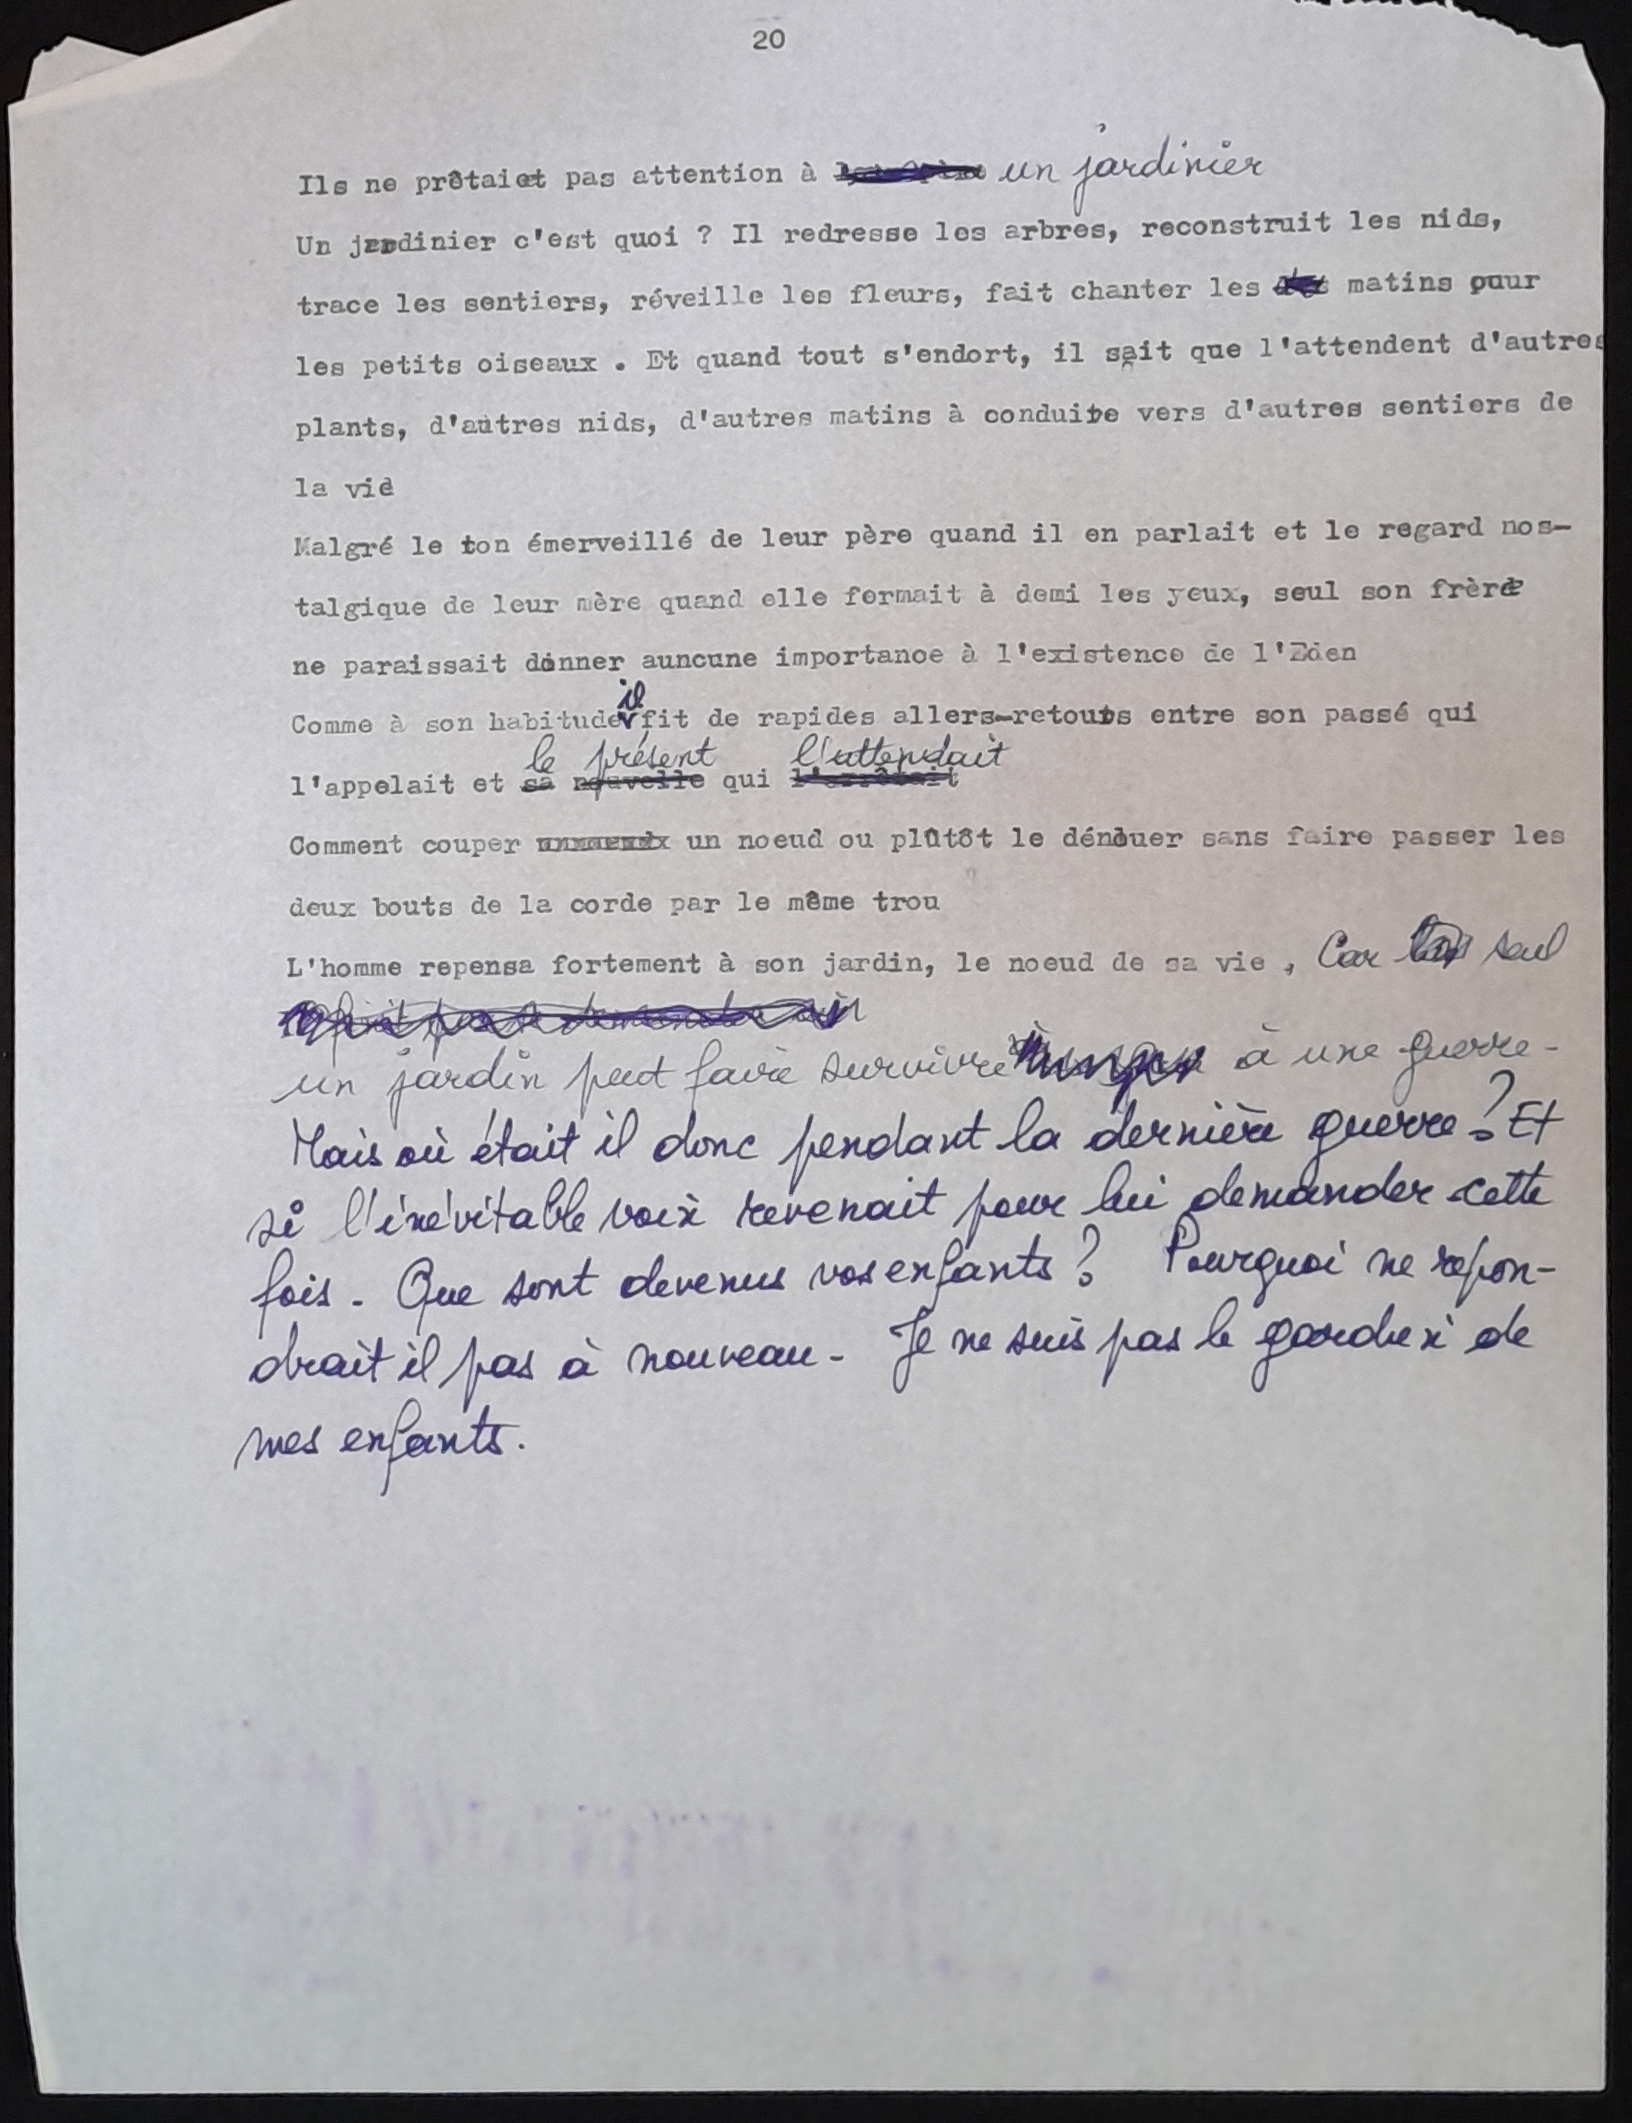 20
Ils ne prêtaiet pas attention à un jardinier
Un jardinier c'est quoi ? Il redresse les arbres, reconstruit les nids,
trace les sentiers, réveille les fleurs, fait chanter les matins pour
les petits oiseaux . Et quand tout s'endort, il sait que l'attendent d'autres
plants, d'autres nids, d'autres matins à conduire vers d'autres sentiers de
la vie
Malgré le ton émerveillé de leur père quand il en parlait et le regard nos-
talgique de leur mère quand elle fermait à demi les yeux, seul son frère
ne paraissait donner auncune importance à l'existence de l'Eden
il
Comme à son habitude fit de rapides allers-retours entre son passé qui
le présent l'attendait
l'appelait et sa nouvelle qui
Comment couper un noeud ou plûtôt le dénouer sans faire passer les
deux bouts de la corde par le même trou
L'homme repensa fortement à son jardin, le noeud de sa vie , Car seul
un jardin peut faire survivre à une guerre -
Mais où était il donc pendant la dernière guerre ? Et
si l'inévitable voix revenait pour lui demander cette
fois - Que sont devenus vos enfants ? Pourquoi ne repon-
drait il pas à nouveau - Je ne suis pas le gardien de
mes enfants.